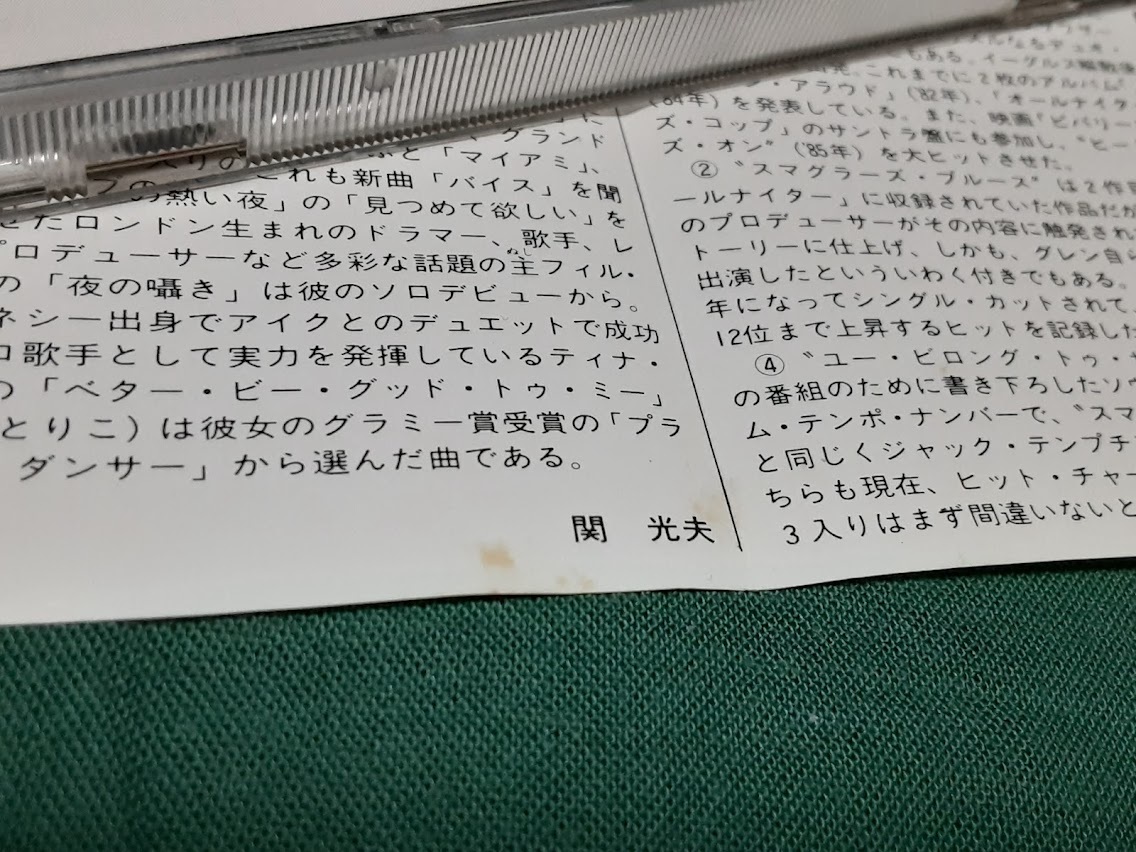 グランド
と「マイアミ」、
これも新曲「バイス」を聞
熱い夜」の「見つめて欲しい」を
せたロンドン生まれのドラマー、歌手、レ
プロデューサーなど多彩な話題の主フィル・
ぬし
の「夜の囁き」は彼のソロデビューから。
ネシー出身でアイクとのデュエットで成功
ロ歌手として実力を発揮しているティナ・
の「ベター・ビー・グッド・トゥ・ミー」
とりこ)は彼女のグラミー賞受賞の「プラ
ダンサー」から選んだ曲である。
関 光夫
もある。イーグルス解散後
これまでに2枚のアルバム
ン・アラウド」('82年)、「オールナイタ
('84年)を発表している。また、映画「ビバリー
ズ・コップ」のサントラ盤にも参加し、〝ヒー
ズ・オン〟('85年)を大ヒットさせた。
②〝スマグラーズ・ブルース〟は2作目
ールナイター」に収録されていた作品だが
のプロデューサーがその内容に触発され
トーリーに仕上げ、しかも、グレン自ら
出演したといういわく付きでもある。
年になってシングル・カットされて、
12位まで上昇するヒットを記録した
④〝ユー・ビロング・トゥ・
の番組のために書き下ろしたソウ
ム・テンポ・ナンバーで、〝スマ
と同じくジャック・テンプチ
ちらも現在、ヒット・チャー
3入りはまず間違いないと